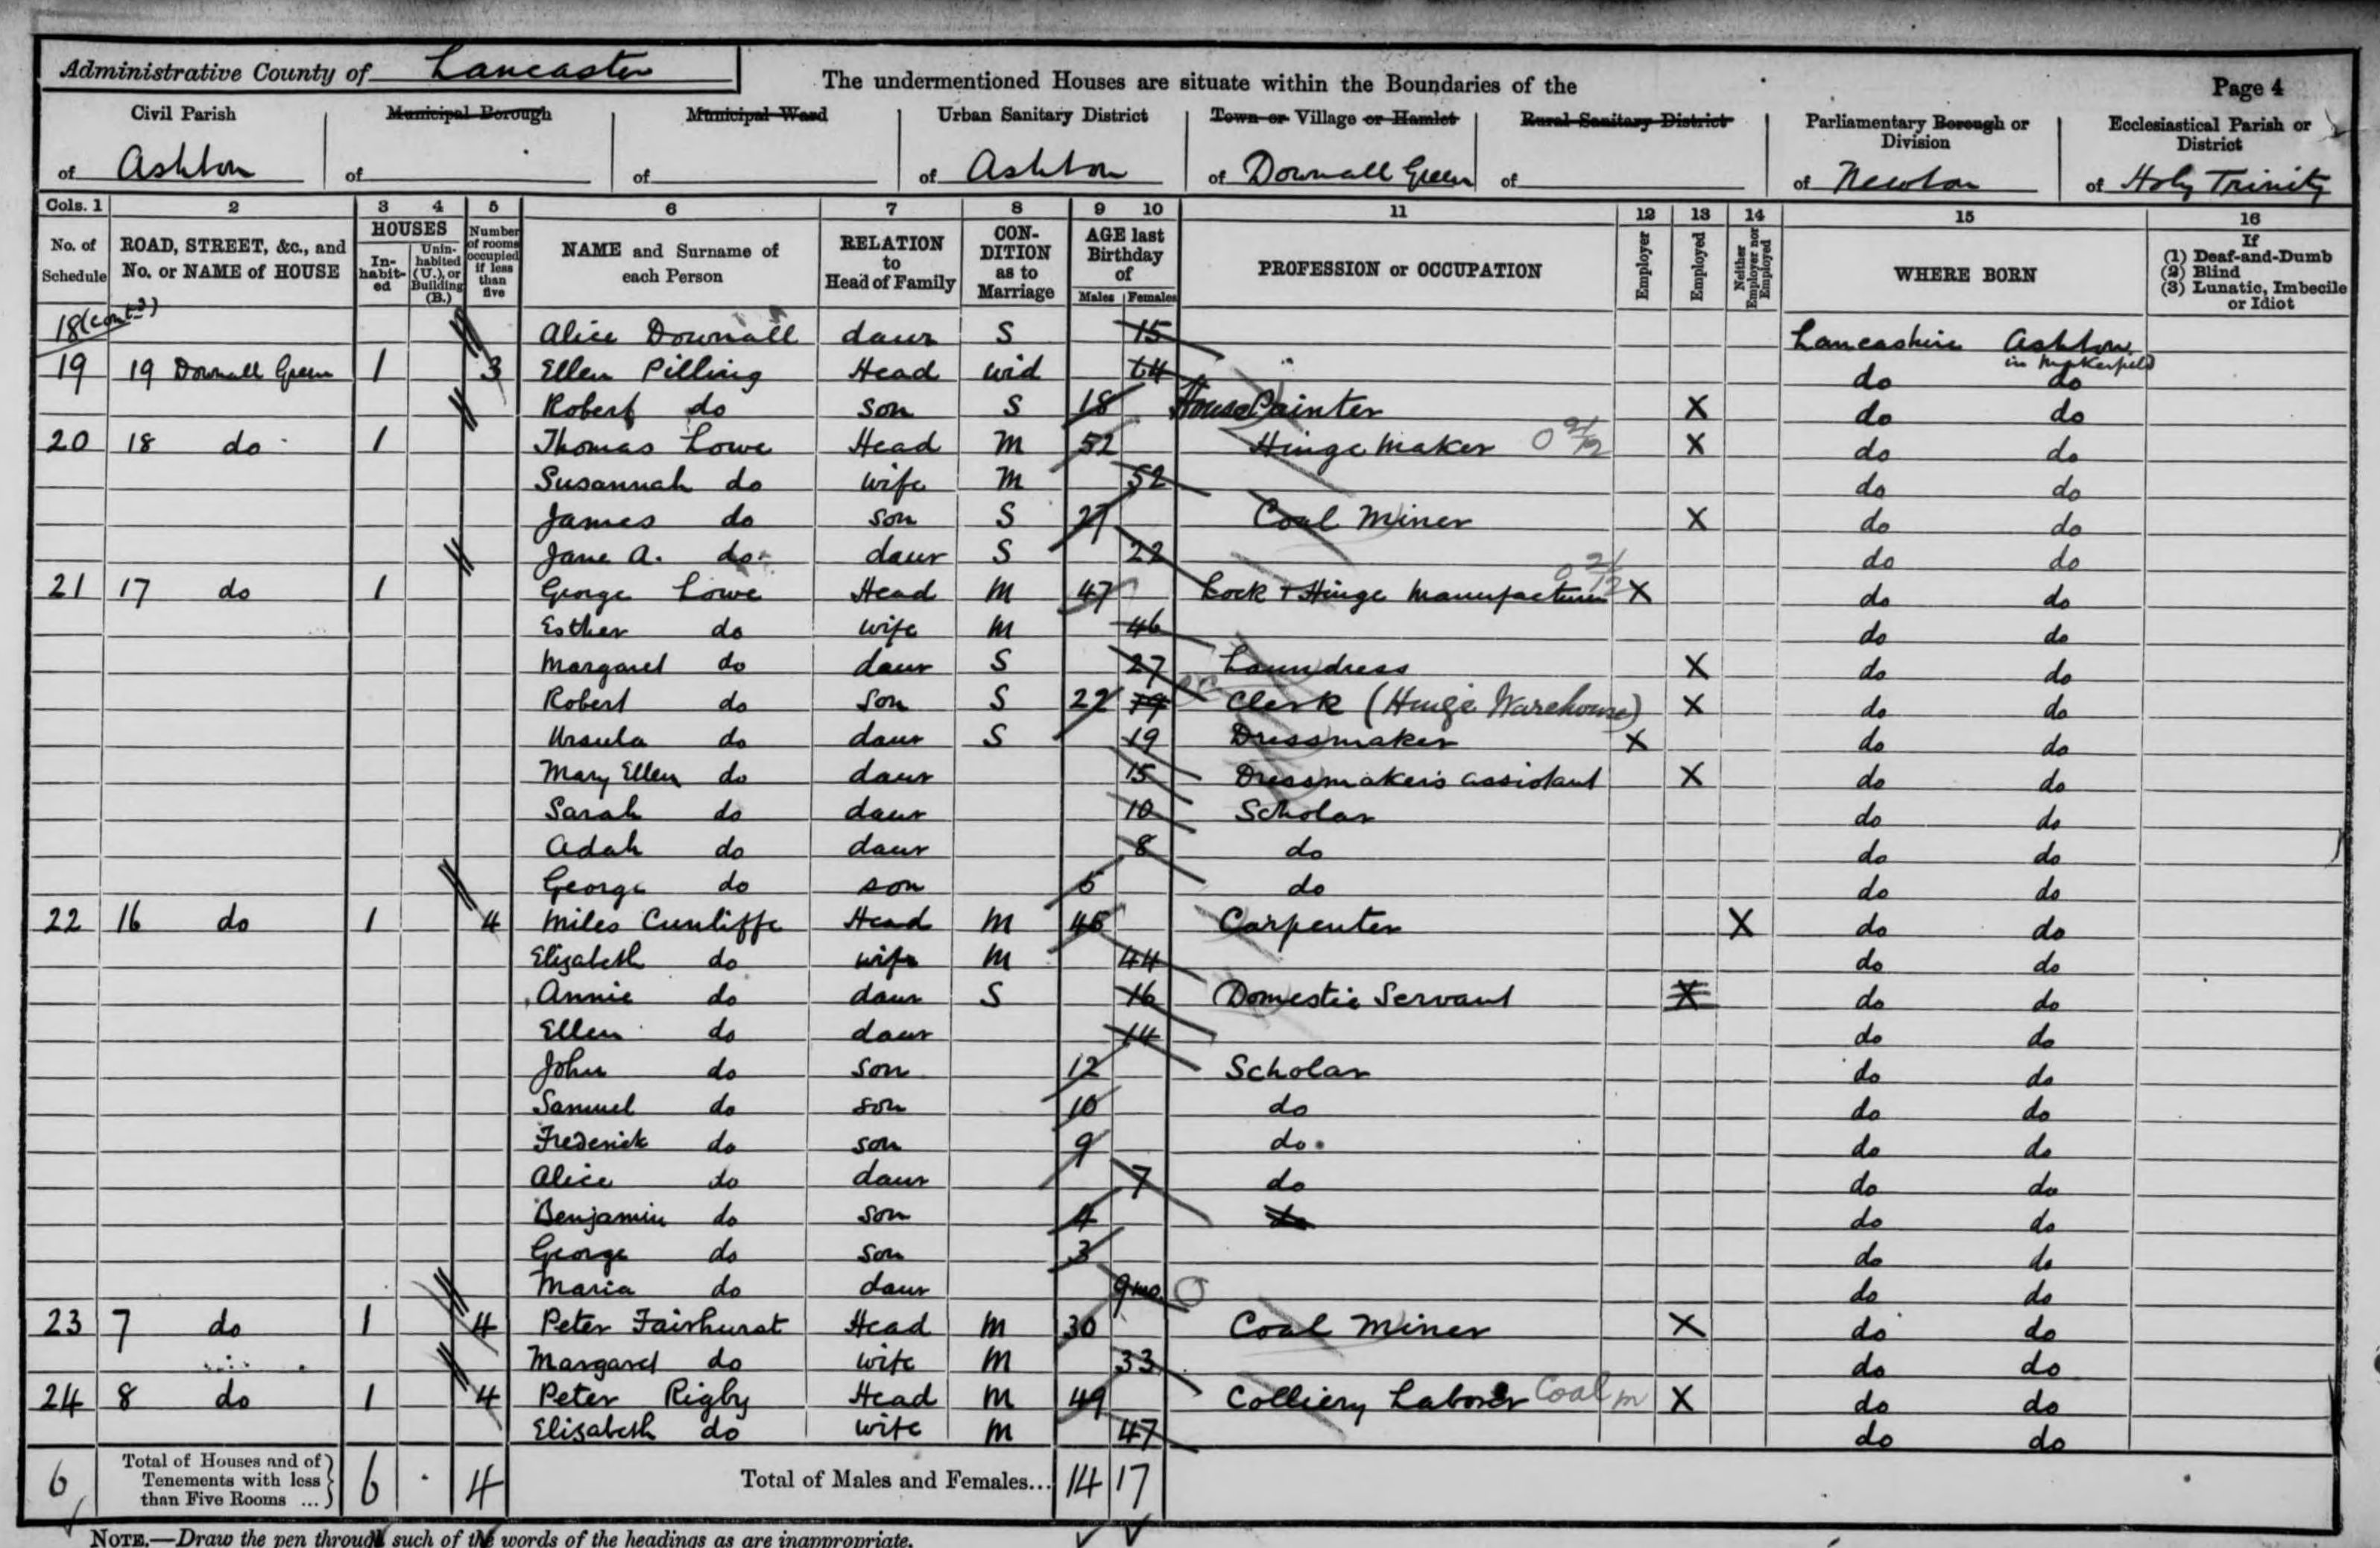 Administrative County of Lancaster
The undermentioned Houses are situate within the Boundaries of the
Page 4
Civil Parish of Ashton
Municipal Borough of
Municipal Ward of
Urban Sanitary District of Ashton
Town or Village or Hamlet of Downall Green
Rural Sanitary District of
Parliamentary Borough or Division of Newton
Ecclesiastical Parish or District of Holy Trinity
Cols. 1 2 3 4 5 6 7 8 9 10 11 12 13 14 15 16
No. of Schedule
ROAD, STREET, &c., and No. or NAME of HOUSE
HOUSES
In-habit-ed
Unin-habited (U.), or Building (B.)
Number of rooms occupied if less than five
NAME and Surname of each Person
RELATION to Head of Family
CON-DITION as to Marriage
AGE last Birthday of
Males Females
PROFESSION or OCCUPATION
Employer
Employed
Neither Employer nor Employed
WHERE BORN
If
(1) Deaf-and-Dumb
(2) Blind
(3) Lunatic, Imbecile or Idiot
18 (contd) Alice Downall daur S 15 Lancashire Ashton in Makerfield
19 19 Downall Green 1 3 Ellen Pilling Head wid 64 do do
Robert do son S 18 House Painter X do do
20 18 do 1 Thomas Lowe Head M 52 Hinge Maker X do do
Susannah do wife M 52 do do
James do son S 27 Coal Miner X do do
Jane A. do daur S 22 do do
21 17 do 1 George Lowe Head M 47 Lock + Hinge Manufacturer X do do
Esther do wife M 46 do do
Margaret do daur S 27 Laundress X do do
Robert do son S 22 19 Clerk (Hinge Warehouse) X do do
Ursula do daur S 19 Dressmaker X do do
Mary Ellen do daur 15 Dressmakers assistant X do do
Sarah do daur 10 Scholar do do
Adah do daur 8 do do do
George do son 5 do do do
22 16 do 1 4 Miles Cunliffe Head M 46 Carpenter X do do
Elizabeth do wife M 44 do do
Annie do daur S 16 Domestic Servant X do do
Ellen do daur 14 do do
John do son 12 Scholar do do
Samuel do son 10 do do do
Frederick do son 9 do do do
Alice do daur 7 do do do
Benjamin do son 4 do do do
George do son 3 do do
Maria do daur 9 mo do do
23 7 do 1 4 Peter Fairhurst Head M 30 Coal Miner X do do
Margaret do wife M 33 do do
24 8 do 1 4 Peter Rigby Head M 49 Colliery Laborer Coal m X do do
Elisabeth do wife M 47 do do
6 Total of Houses and of Tenements with less than Five Rooms ... 6 4 Total of Males and Females... 14 17
NOTE.—Draw the pen through such of the words of the headings as are inappropriate.